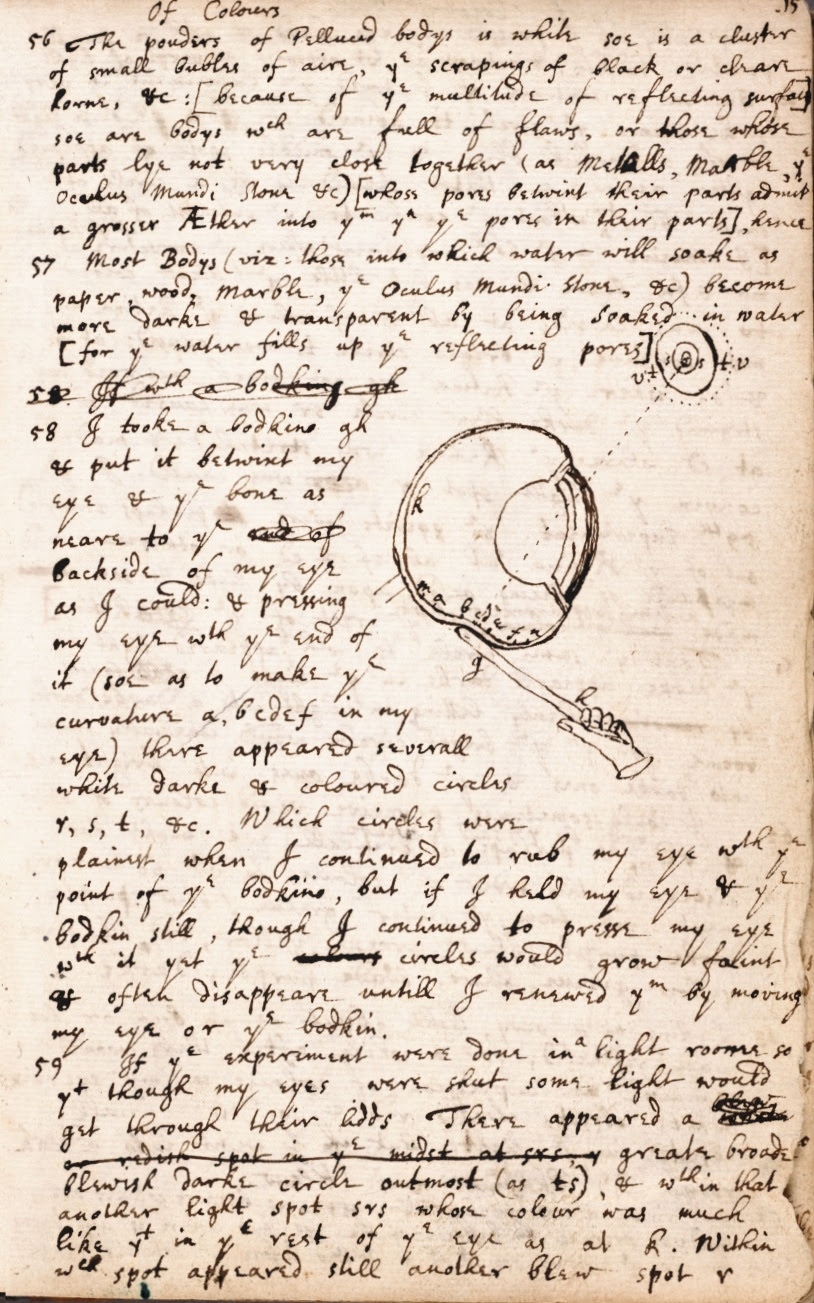 Of Colours
15
56 The pouders of Pellucid bodys is white soe is a cluster
of small bubles of aire, yᵉ scrapings of black or cleare
horne, &c: [because of yᵉ multitude of reflecting surfaces]
soe are bodys wᶜʰ are full of flaws, or those whose
parts lye not very close together (as Metalls, Marble, yᵉ
Oculus Mundi Stone &c) [whose pores betwixt their parts admit
a grosser Æther into yᵐ yⁿ yᵉ pores in their parts], hence
57 Most Bodys (viz: those into which water will soake as
paper, wood, Marble, yᵉ Oculus Mundi Stone, &c) become
more darke & transparent by being soaked in water
[for yᵉ water fills up yᵉ reflecting pores]
v t s r s t v
58 If wᵗʰ a bodking gh
58 I tooke a bodkine gh
& put it betwixt my
eye & yᵉ bone as
neare to yᵉ end of
backside of my eye
as I could: & pressing
my eye wᵗʰ yᵉ end of
it (soe as to make yᵉ
curvature a, bcdef in my
eye) there appeared severall
white darke & coloured circles
r, s, t, &c. Which circles were
plainest when I continued to rub my eye wᵗʰ yᵉ
point of yᵉ bodkine, but if I held my eye & yᵉ
bodkin still, though I continued to presse my eye
wᵗʰ it yet yᵉ colours circles would grow faint
& often disappeare untill I renewed yᵐ by moving
my eye or yᵉ bodkin.
k
m a b c d e f n
g
h
59 If yᵉ experiment were done in a light roome so
yᵗ though my eyes were shut some light would
get through their lidds There appeared a
or redish spot in yᵉ midst at srs, y greate broade
blewish darke circle outmost (as ts), & wᵗʰin that
another light spot srs whose colour was much
like yᵗ in yᵉ rest of yᵉ eye as at k. Within
wᶜʰ spot appeared still another blew spot r